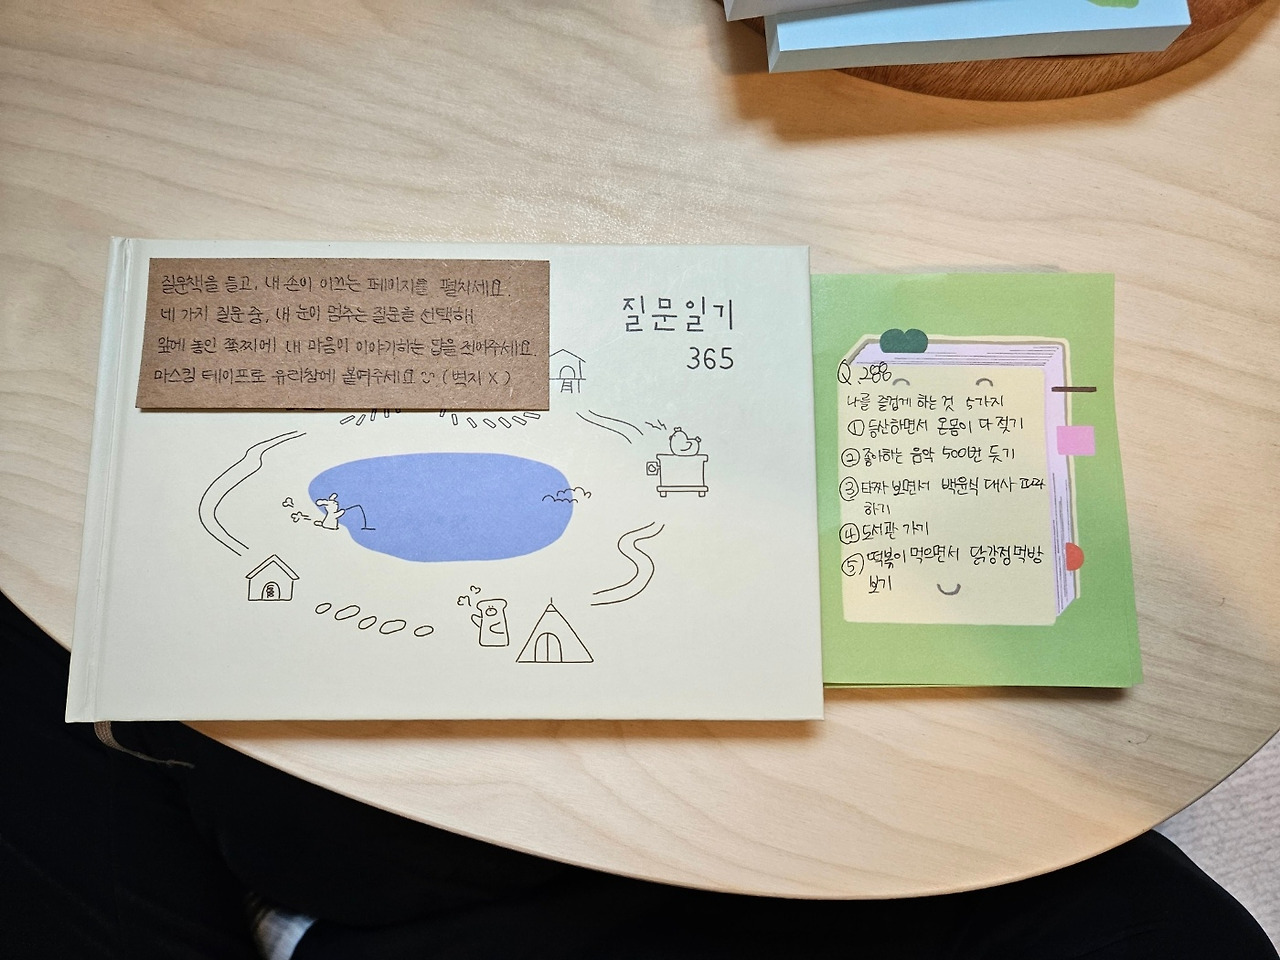 질문책을 들고, 내 손이 이끄는 페이지를 펼치세요.
네 가지 질문 중, 내 눈이 멈추는 질문을 선택해
앞에 놓인 쪽찌에 내 마음이 이야기하는 답을 적어주세요.
마스킹 테이프로 유리창에 붙여주세요 (벽지 X)
질문일기
365
Q.288
나를 즐겁게 하는 것 5가지
① 등산하면서 온몸이 다 젖기
② 좋아하는 음악 500번 듣기
③ 타짜 보면서 백윤식 대사 따라
하기
④ 도서관 가기
⑤ 떡볶이 먹으면서 닭강정 먹방
보기